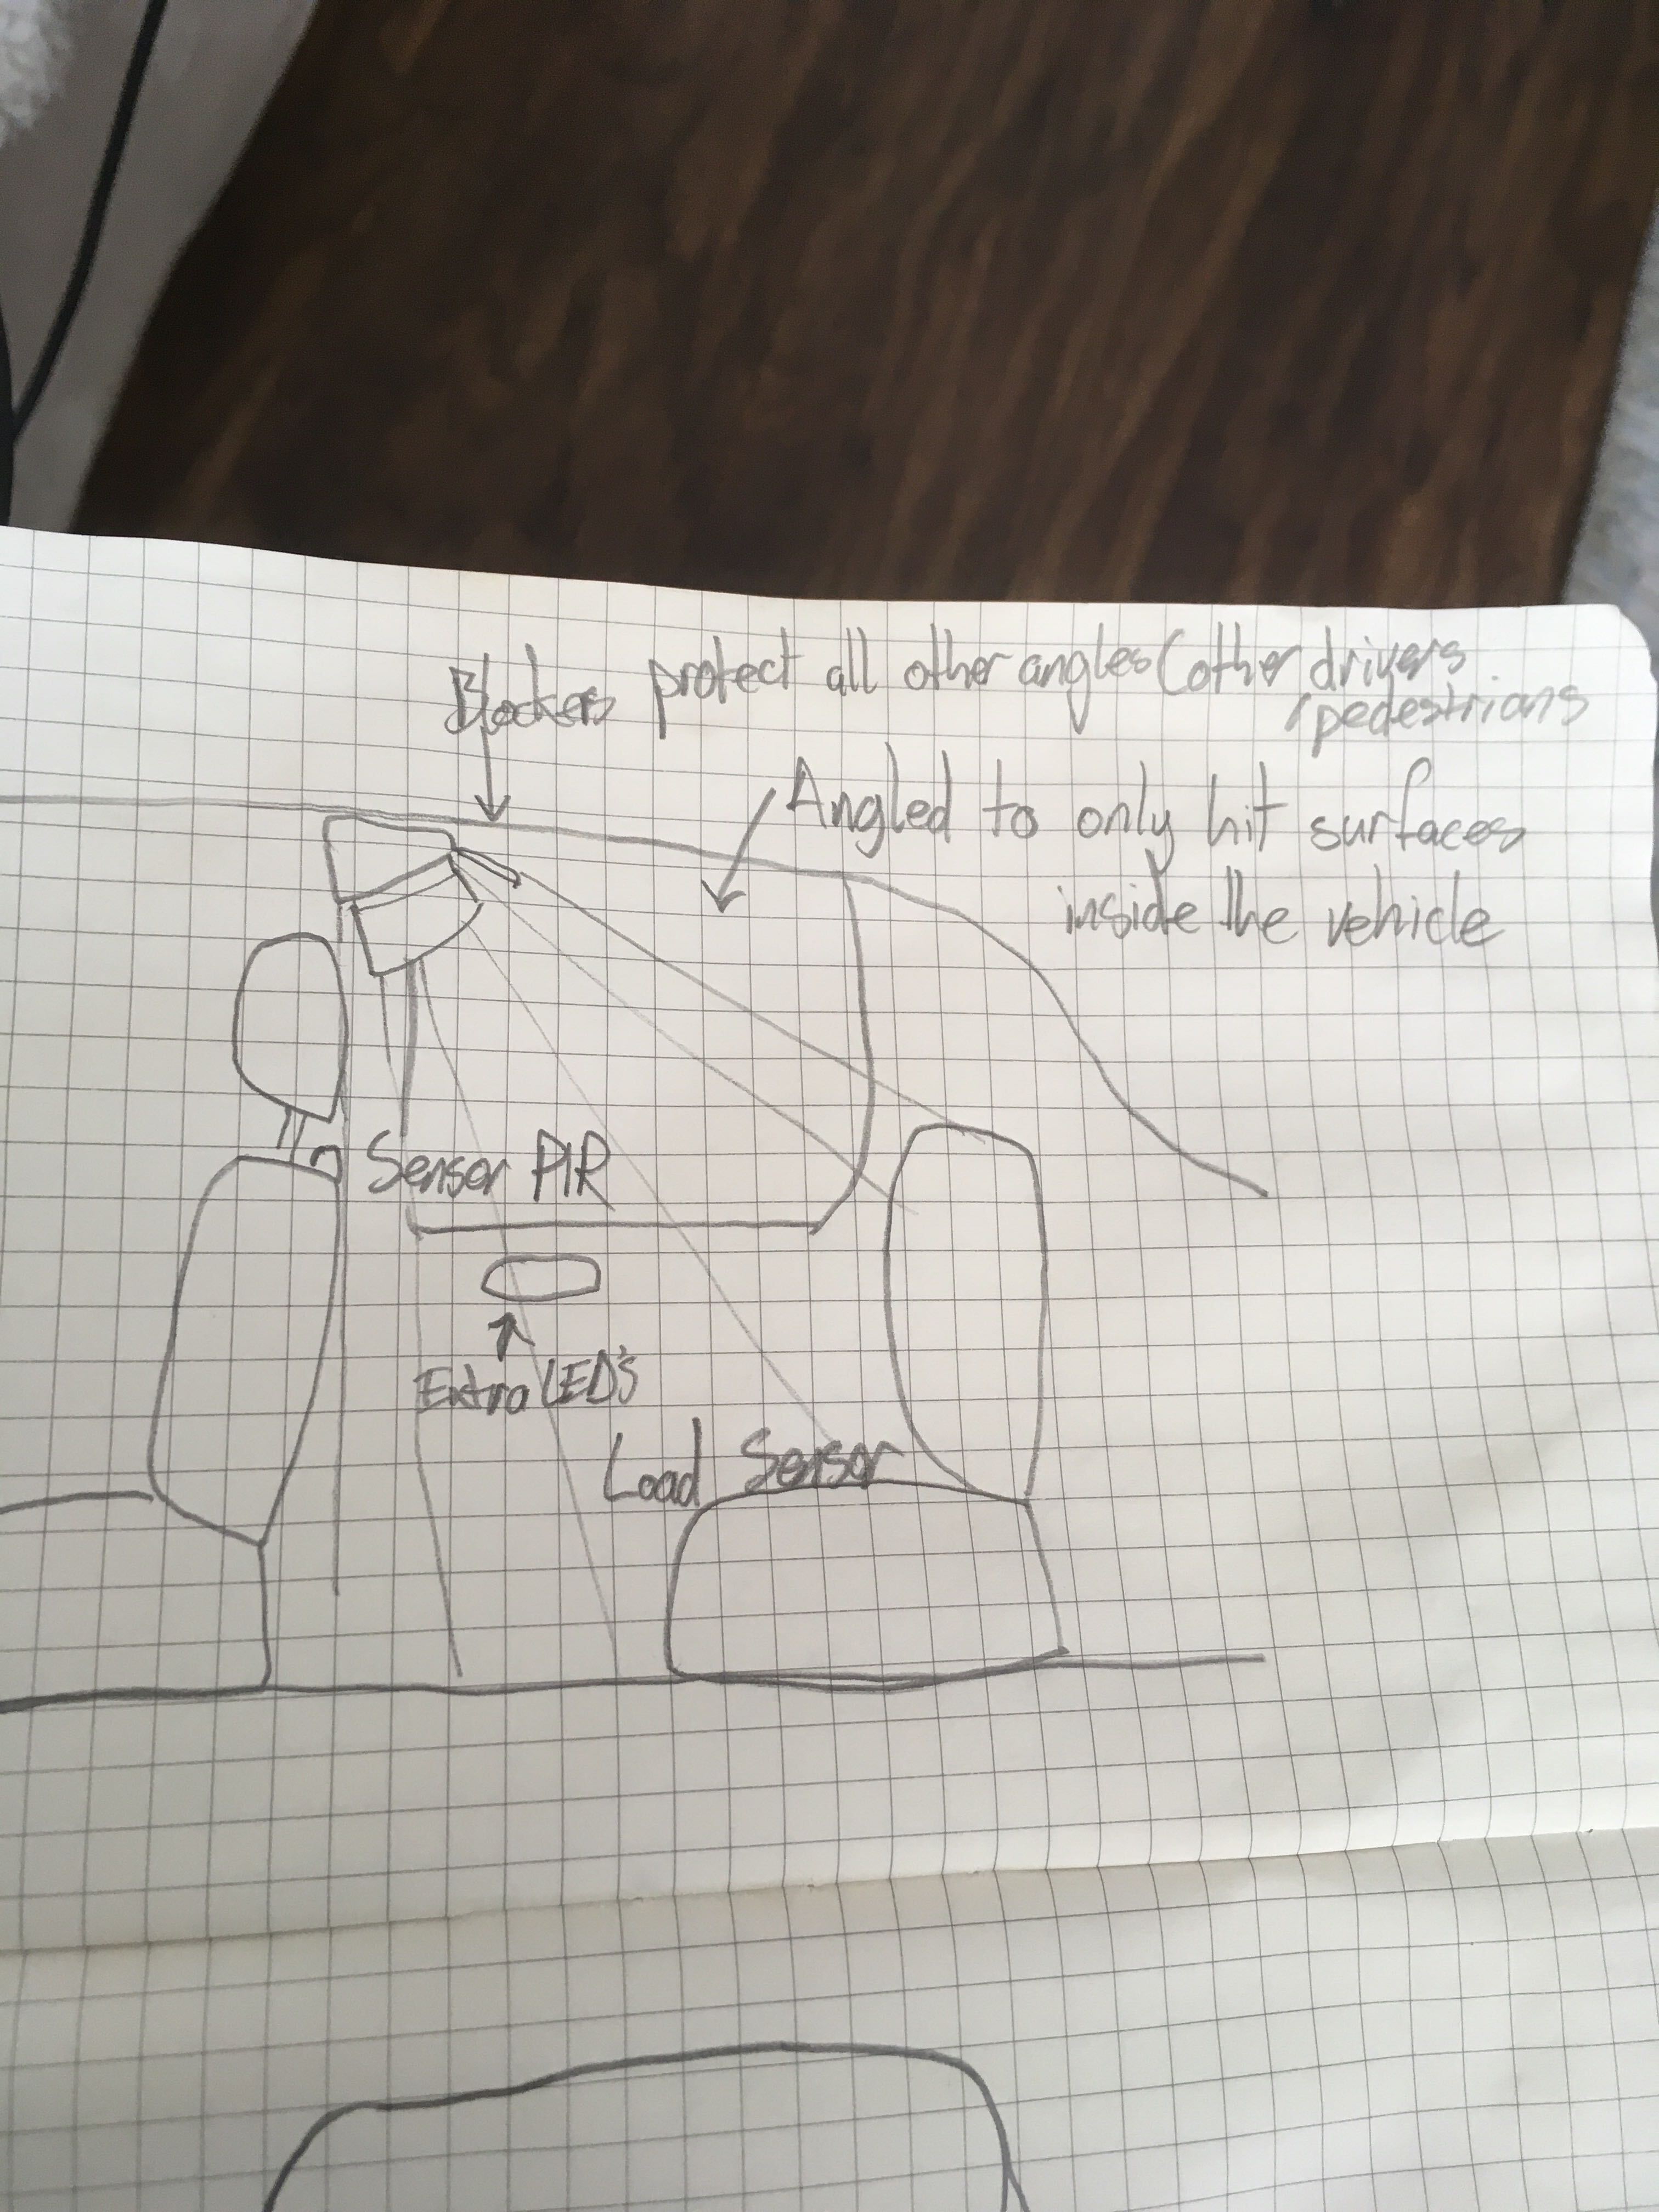 Blockers protect all other angles (other drivers
/pedestrians
Angled to only hit surfaces
inside the vehicle
Sensor PIR
Extra LED's
Load Sensor